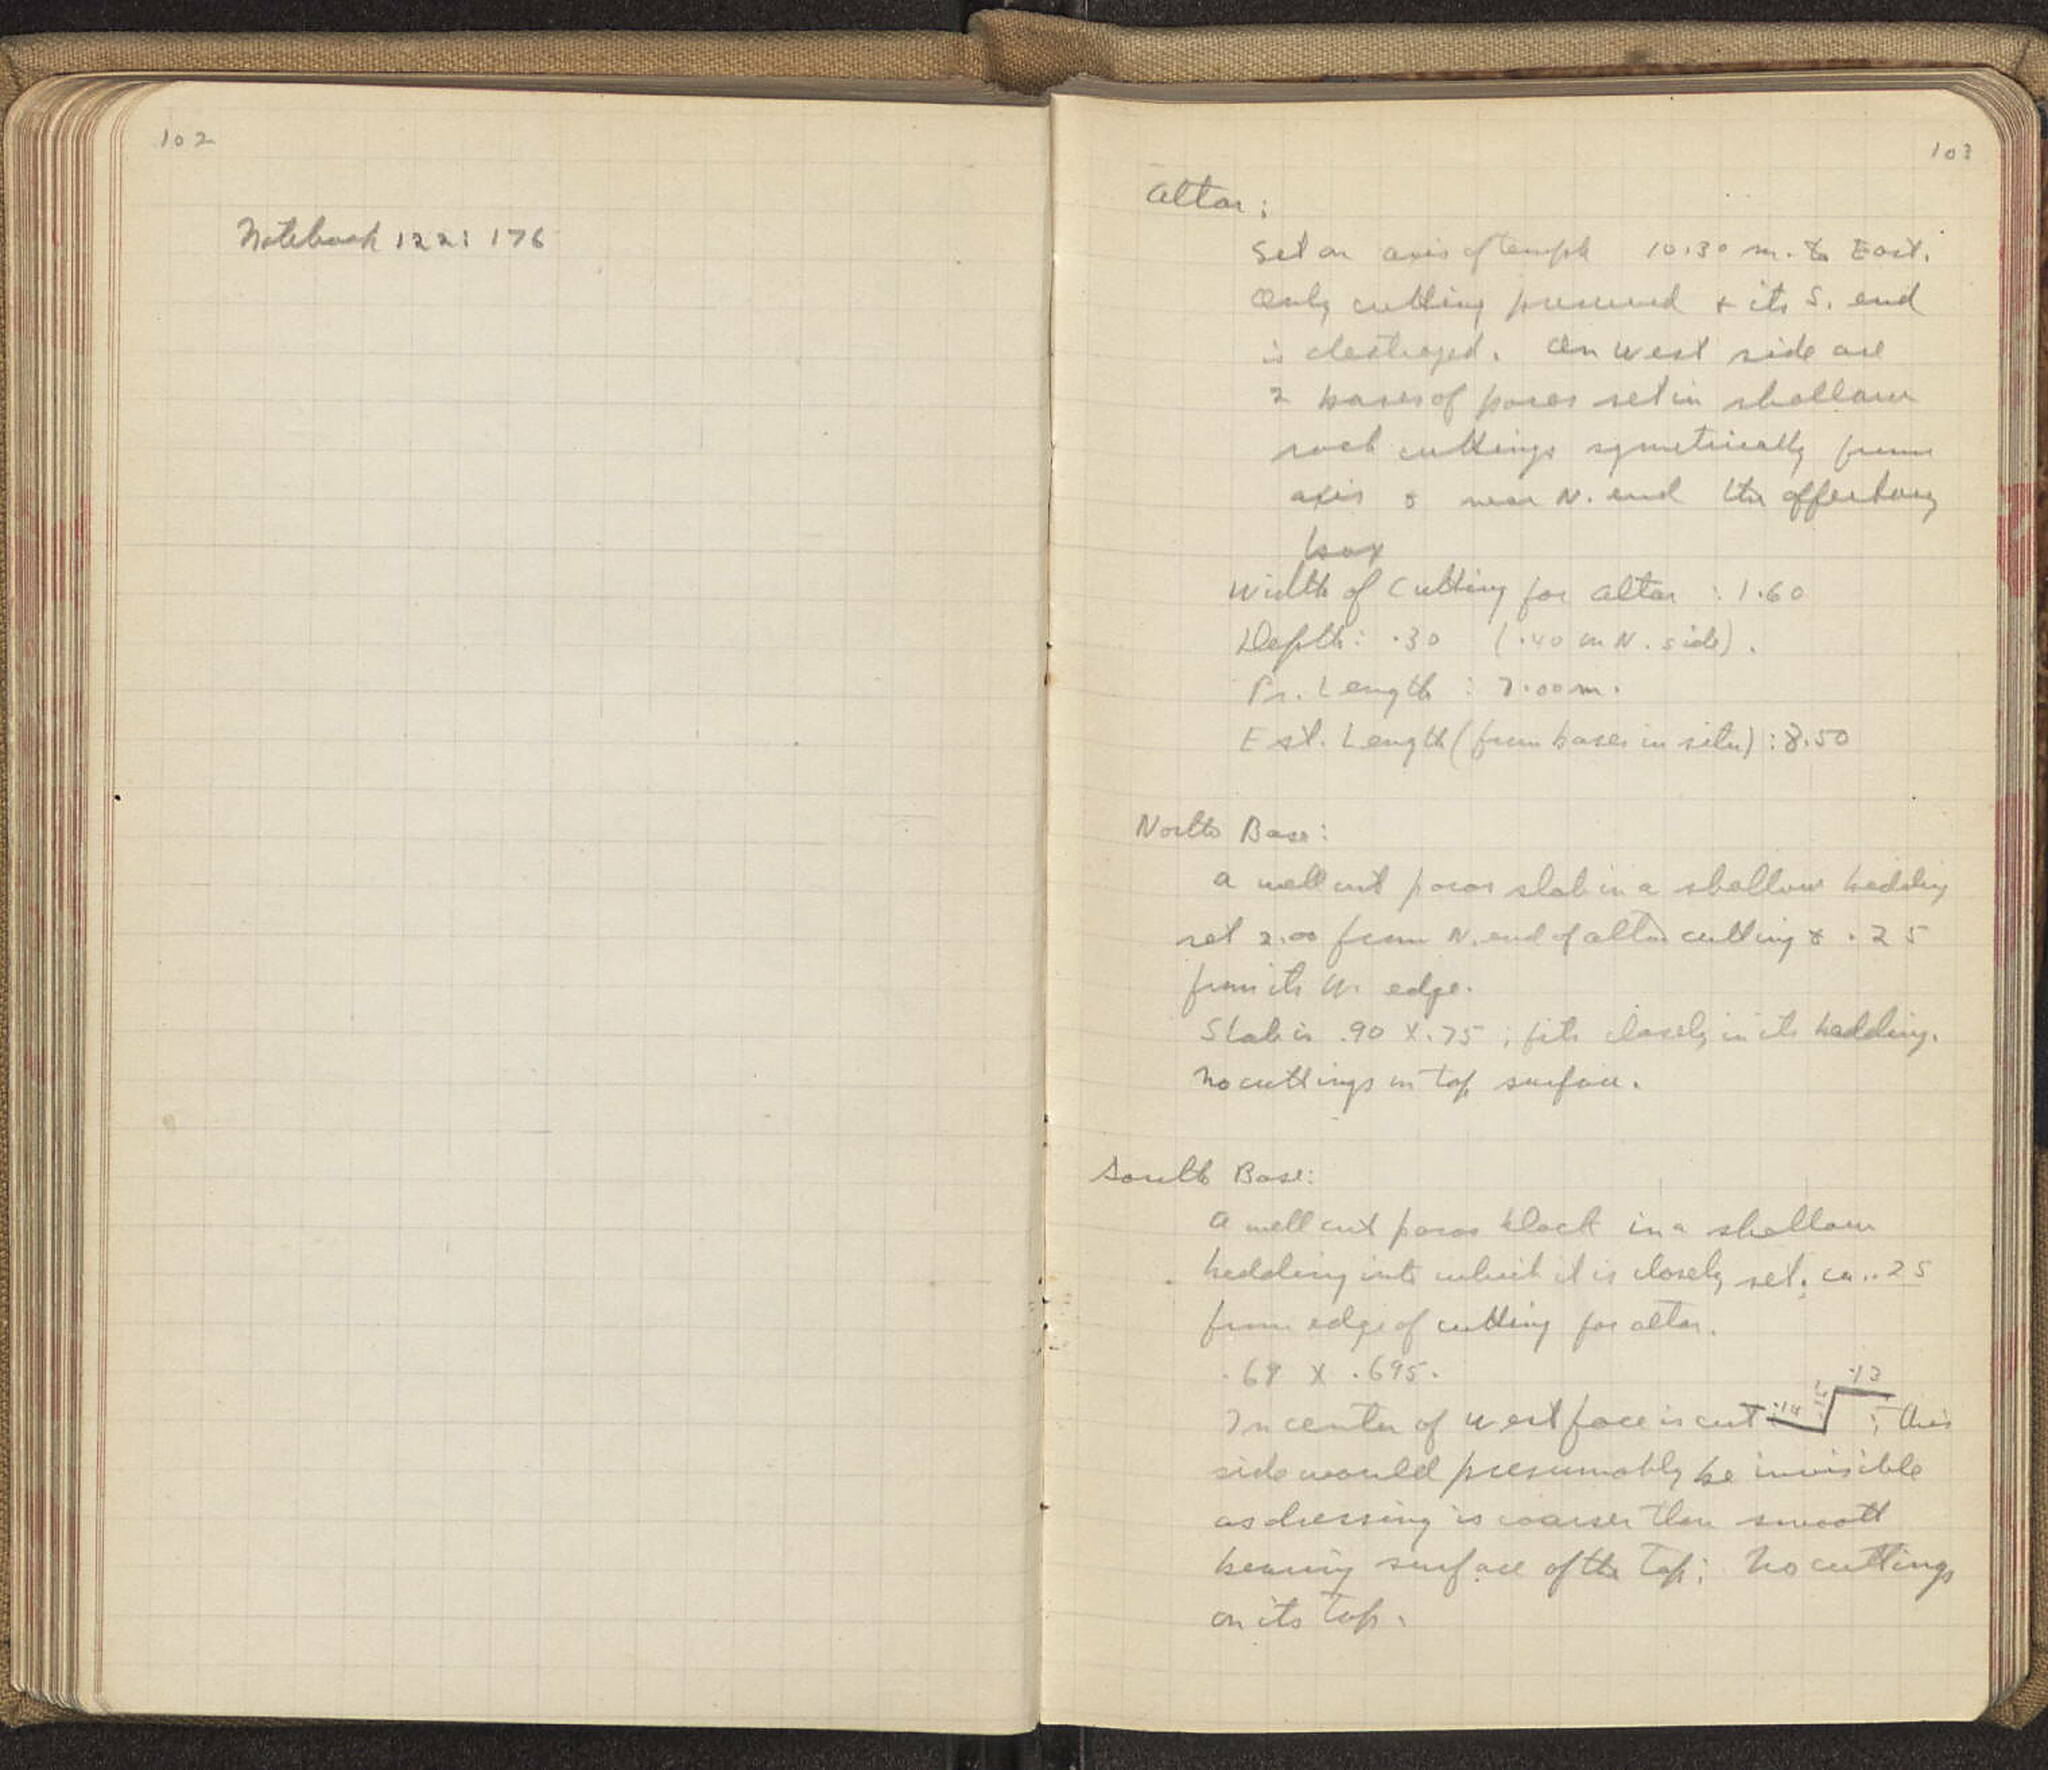 102
Notebook 122: 176
103
Altar:
Set on axis of temple 10.30 m. to East.
Only cutting preserved & its S. end
is destroyed. On West side are
2 bases of poros set in shallow
rock cuttings symetrically from
axis & near N. end the offertory
box
Width of Cutting for altar : 1.60
Depth: .30 (.40 on N. side).
Pr. Length : 7.00 m.
Est. Length (from bases in situ) : 8.50
North Base:
A well cut poros slab in a shallow bedding
set 2.00 from N. end of altar cutting & .25
from its W. edge.
Slab is .90 X .75 ; fits closely in its bedding.
No cuttings in top surface.
South Base:
A well cut poros block in a shallow
bedding into which it is closely set, ca. .25
from edge of cutting for altar.
.68 X .695.
.13
In center of West face is cut .14 ; this
side would presumably be invisible
as dressing is coarser than smooth
bearing surface of the top; No cuttings
on its top.